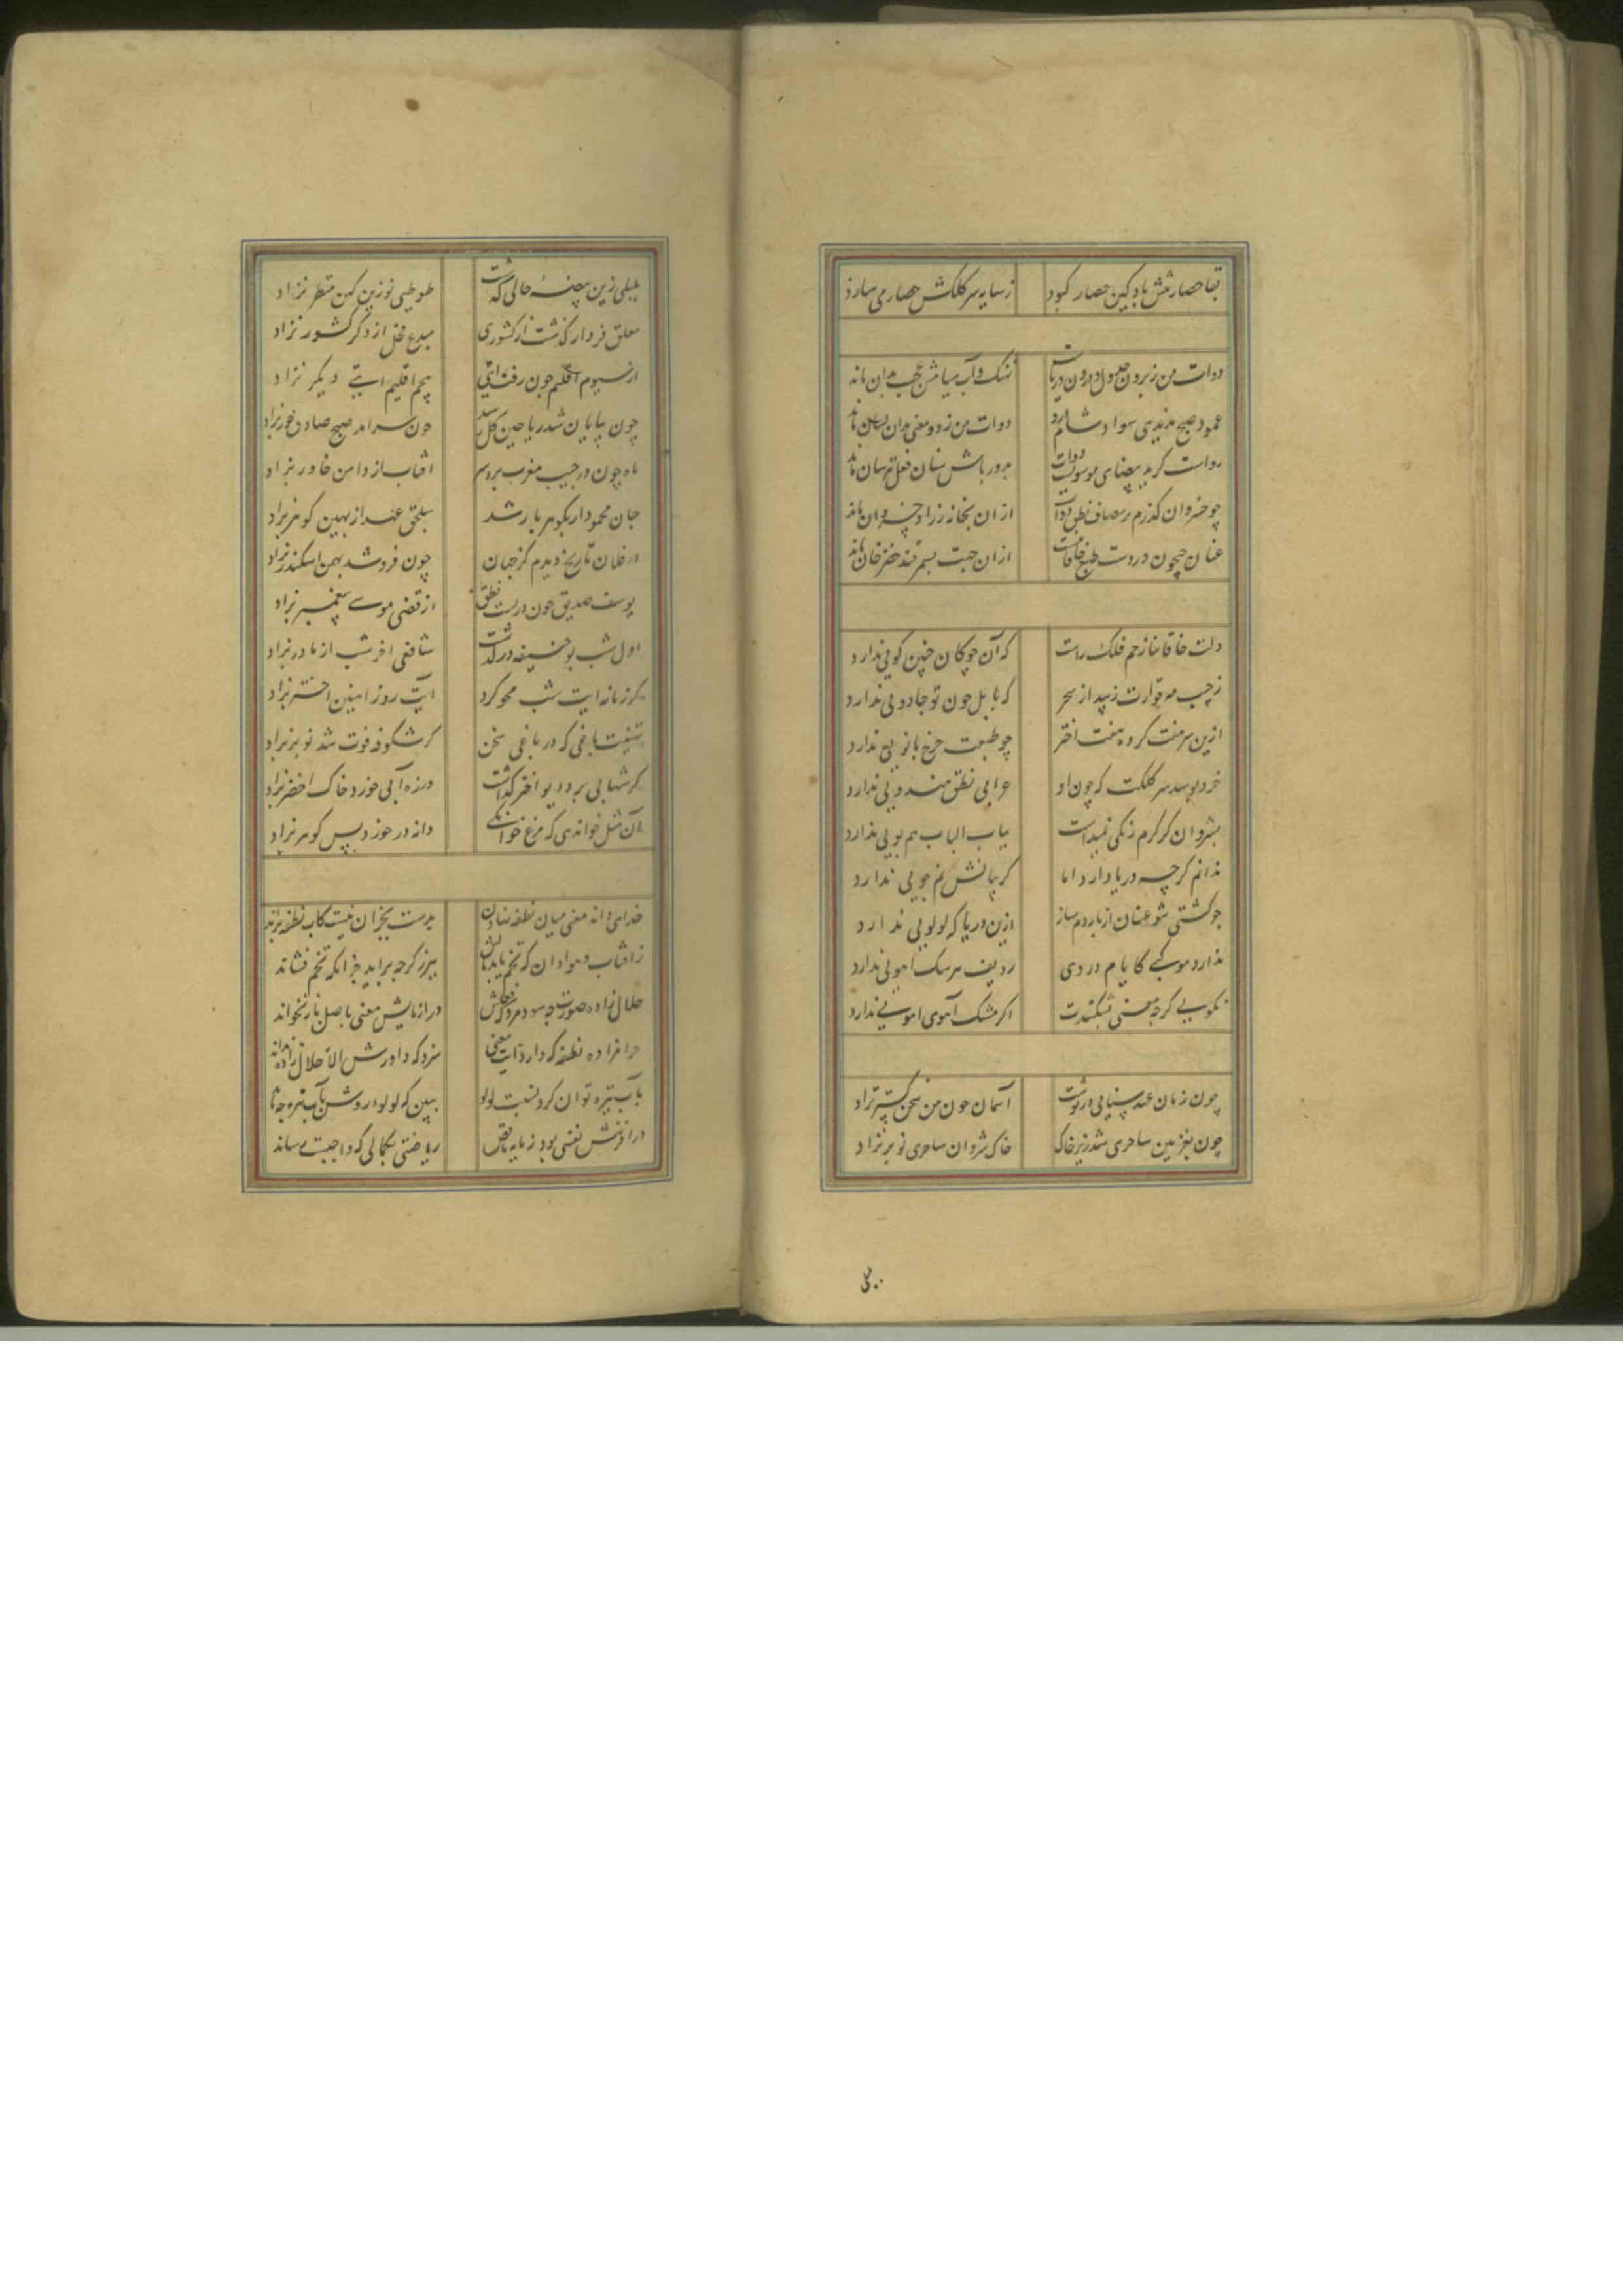 بقا حصار تنش باد کین حصار کبود زسایه سر کلکش حصار می سازد
دوات من ز برون جدول و درون دریاست نهنک و آب سیاهش عجب بدان ماند
عمود صبح ندیدی سواد شام درو دوات من ز دو معنی بدان
رواست کر ید بیضای موسویست دوات بدور باش سنان فعل
چو خسروان کذرم بر مصاف نطق دوات از ان
عنان جیحون در دست طبع خاقانیست از ان جهت بسمرقند خضرخان ماند
دلت خاقانیا زخم فلک راست که آن چوکان چنین کویی ندارد
زجیب مه قوارت زیبد از سحر که بابل چون تو جادویی ندارد
ازین سر هفت کرده هفت اختر چو طبعت چرخ بانویی ندارد
خرد بوسد سر کلکت که چون او عرابی نطق هندویی ندارد
بشروان کر کرم رنکی نمیداشت بباب الباب هم بویی ندارد
ندانم کرچه دریا دارد اما کریبانش نم جویی ندارد
چو کشتی شو عنان از پاردم ساز ازین دریا که لولویی ندارد
ندارد موکبی کایام در وی ردیف هر سک آهویی ندارد
نکویی کرچه معنی بشکندت اکر مشک آهوی آهویی ندارد
چون زمان عهد سنایی در نوشت آسمان چون من سخن کستر بزاد
چون بغزنین ساحری شد زیر خاک خاک شروان ساحری نو بر بزاد
بلبلی زین بیضه خالی کذشت طوطیی نو زین کهن منظر بزاد
مفلق فرد ار کذشت از کشوری مبدع فحل از دکر کشور بزاد
از سیوم اقلیم چون رفت آیتی پنجم اقلیم آیتی دیکر بزاد
چون بپایان شد ریاحین کل رسید چون سر آمد صبح صادق خور بزاد
ماه چون در جیب مغرب برد سر آفتاب از دامن خاور بزاد
جان محمود ار بکوهر باز شد سلجق عهد از بهین کوهر بزاد
در فلان تاریخ دیدم کز جهان چون فروشد بهمن اسکندر بزاد
یوسف صدیق چون بربست نطق از قضی موسی پیغمبر بزاد
اول شب بوحنیفه درکذشت شافعی آخر شب از مادر بزاد
کر زمانه آیت شب محو کرد آیت روز از مهین اختر بزاد
تهنیت باغی که در باغی سخن کر شکوفه فوت شد نوبر بزاد
کر شهابی برد دیو اختر کذاشت ور زه آبی خورد خاک اخضر بزاد
آن مثل خواندی که مرغ خانکی دانه در خورد پس کوهر بزاد
خدای داند معنی میان نطفه نهادن بدست بیخبران نیست کاب نطفه براند
ز آفتاب و هوا دان که تخم یابد بالش ببرز کرچه برآید جز آنکه تخم فشاند
حلال زاده صورت چه سود مرد که فعلش در آزمایش معنی باصل باز نخواند
حرامزاده نطفه که دارد آیت معنی سزد که داورش الا حلال زاده نداند
بآب تیره توان کرد نسبت لولو ببین که لولوء روشن بآب تیره چه ماند
در آفرینش نفسی بود ز مایه ناقص ریاضتی بکمالی که واجبست رساند